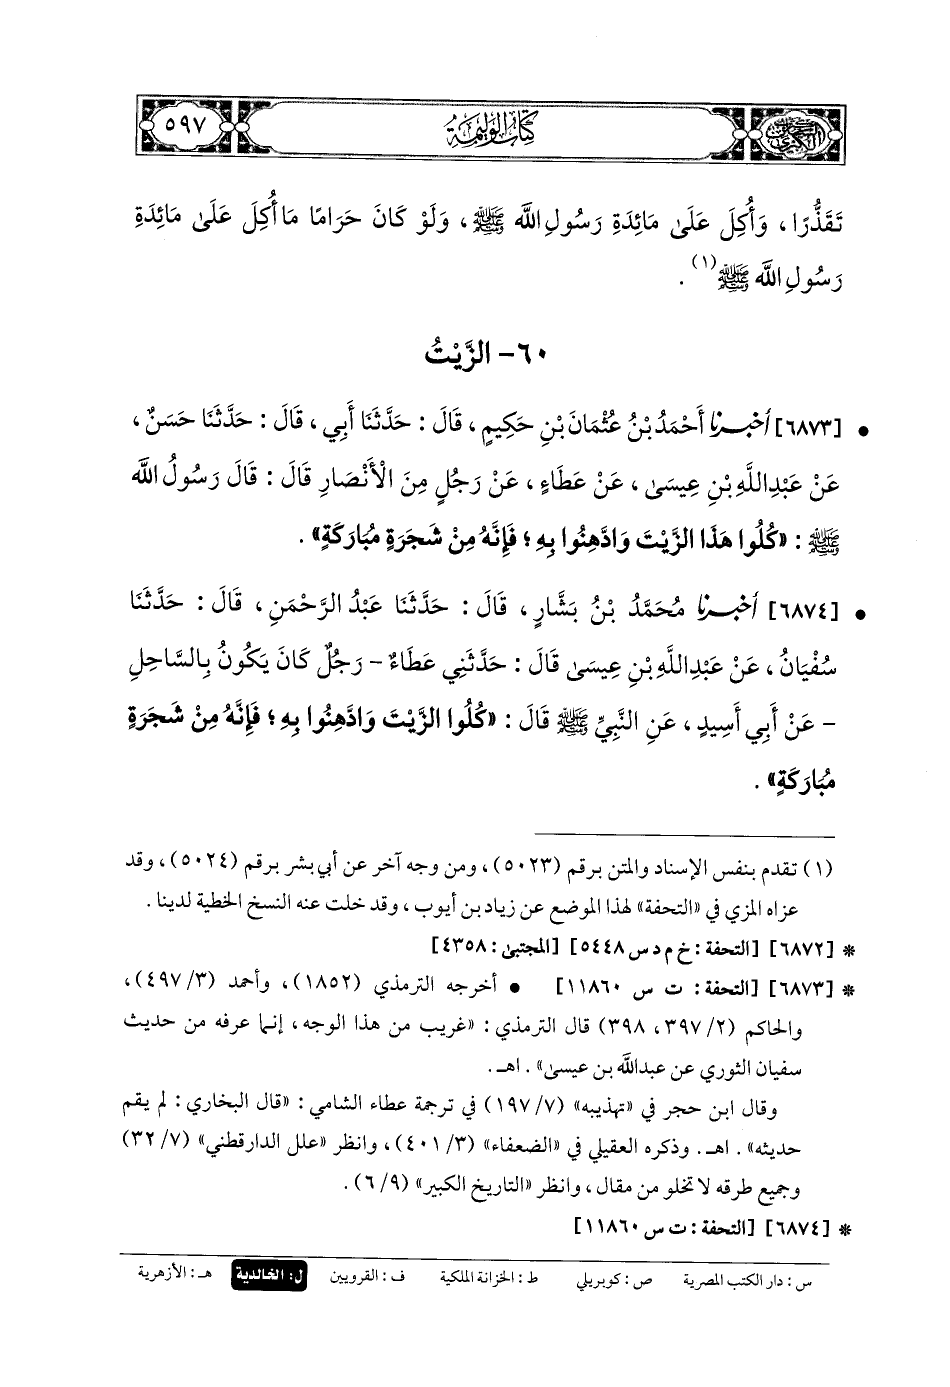 كتاب الوليمة
٥٩٧
تَقَذُّرًا ، وَأُكِلَ عَلَىٰ مَائِدَةِ رَسُولِ اللَّه ﷺ ، وَلَوْ كَانَ حَرَامًا مَا أُكِلَ عَلَىٰ مَائِدَةِ
رَسُولِ اللَّه ﷺ(١) .
٦٠- الزَّيْتُ
• [٦٨٧٣] أخبرنا أَحْمَدُ بْنُ عُثْمَانَ بْنِ حَكِيمٍ ، قَالَ : حَدَّثَنَا أَبِي ، قَالَ : حَدَّثَنَا حَسَنٌ ،
عَنْ عَبْدِاللَّهِ بْنِ عِيسَىٰ ، عَنْ عَطَاءٍ ، عَنْ رَجُلٍ مِنَ الْأَنْصَارِ قَالَ : قَالَ رَسُولُ اللَّه
ﷺ : «كُلُوا هَذَا الزَّيْتَ وَادَّهِنُوا بِهِ ؛ فَإِنَّهُ مِنْ شَجَرَةٍ مُبَارَكَةٍ» .
• [٦٨٧٤] أخبرنا مُحَمَّدُ بْنُ بَشَّارٍ ، قَالَ : حَدَّثَنَا عَبْدُ الرَّحْمَنِ ، قَالَ : حَدَّثَنَا
سُفْيَانُ ، عَنْ عَبْدِاللَّهِ بْنِ عِيسَىٰ قَالَ : حَدَّثَنِي عَطَاءٌ - رَجُلٌ كَانَ يَكُونُ بِالسَّاحِلِ
- عَنْ أَبِي أَسِيدٍ ، عَنِ النَّبِيِّ ﷺ قَالَ : «كُلُوا الزَّيْتَ وَادَّهِنُوا بِهِ ؛ فَإِنَّهُ مِنْ شَجَرَةٍ
مُبَارَكَةٍ» .
(١) تقدم بنفس الإسناد والمتن برقم (٥٠٢٣) ، ومن وجه آخر عن أبي بشر برقم (٥٠٢٤) ، وقد
عزاه المزي في «التحفة» لهذا الموضع عن زياد بن أيوب ، وقد خلت عنه النسخ الخطية لدينا .
* [٦٨٧٢] [التحفة : خ م د س ٥٤٤٨] [المجتبىٰ : ٤٣٥٨]
* [٦٨٧٣] [التحفة : ت س ١١٨٦٠] • أخرجه الترمذي (١٨٥٢) ، وأحمد (٣/ ٤٩٧) ،
والحاكم (٢/ ٣٩٧، ٣٩٨) قال الترمذي : «غريب من هذا الوجه ، إنما عرفه من حديث
سفيان الثوري عن عبدالله بن عيسىٰ» . اهـ.
وقال ابن حجر في «تهذيبه» (٧/ ١٩٧) في ترجمة عطاء الشامي : «قال البخاري : لم يقم
حديثه» . اهـ. وذكره العقيلي في «الضعفاء» (٣/ ٤٠١) ، وانظر «علل الدارقطني» (٧/ ٣٢)
وجميع طرقه لا تخلو من مقال ، وانظر «التاريخ الكبير» (٩/ ٦) .
* [٦٨٧٤] [التحفة : ت س ١١٨٦٠]
س : دار الكتب المصرية ص : كوبريلي ط : الخزانة الملكية ف : القرويين ل : الخالدية هـ : الأزهرية